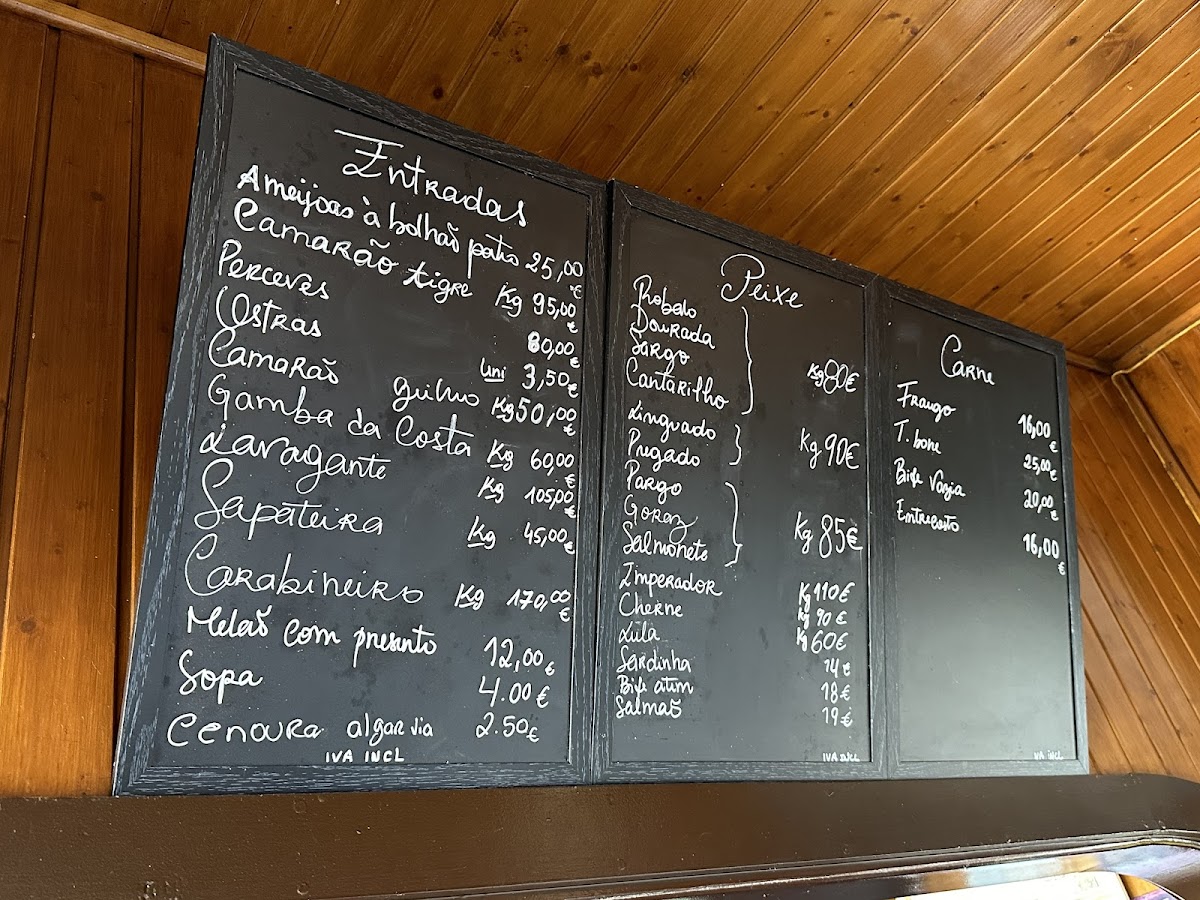 Entradas
Ameijoas à bolhão pato 25,00 €
Camarão tigre Kg 95,00 €
Perceves 80,00 €
Ostras Uni 3,50 €
Camarão guilho Kg 50,00 €
Gamba da Costa Kg 60,00 €
Lavagante Kg 105,00 €
Sapateira Kg 45,00 €
Carabineiro Kg 170,00 €
Melão com presunto 12,00 €
Sopa 4.00 €
Cenoura algarvia 2.50 €
IVA INCL
Peixe
Robalo
Dourada
Sargo
Cantarilho
Kg 80 €
Linguado
Pregado
Kg 90 €
Pargo
Goraz
Salmonete
Kg 85 €
Imperador Kg 110 €
Cherne Kg 90 €
Lula Kg 60 €
Sardinha 14 €
Bife atum 18 €
Salmão 19 €
IVA INCL
Carne
Frango 16,00 €
T. bone 25,00 €
Bife Vazia 20,00 €
Entrecosto 16,00 €
IVA INCL